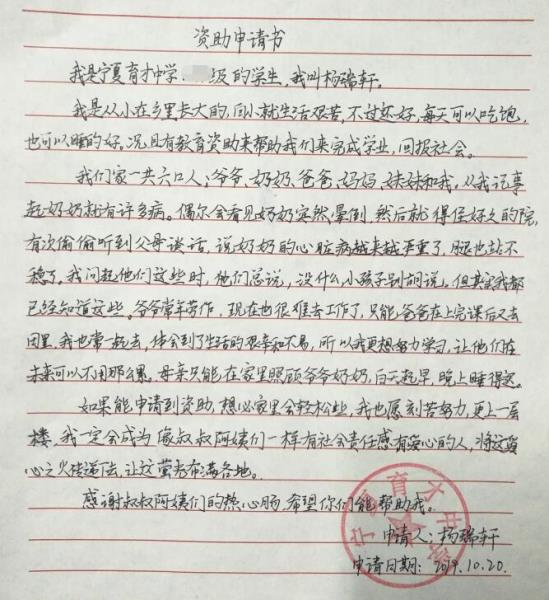 资助申请书
我是宁夏育才中学 级的学生，我叫杨瑞轩。
我是从小在乡里长大的，同小就生活艰苦，不过还好，每天可以吃饱，
也可以睡的好。况且有教育资助来帮助我们来完成学业，回报社会。
我们家一共六口人；爷爷、奶奶、爸爸、妈妈、妹妹和我，从我记事
起奶奶就有许多病。偶尔会看见奶奶突然晕倒，然后就得住好久的院，
有次偷偷听到父母谈话，说奶奶的心脏病越来越严重了，腿也站不
稳了。我问起他们这些时，他们总说，没什么，小孩子别胡说。但其实我都
已经知道这些。爷爷常年劳作，现在也很难去工作了，只能爸爸在上完课后又去
田里，我也常一起去，体会到了生活的艰辛和不易，所以我更想努力学习，让他们在
未来可以不用那么累。母亲只能在家里照顾爷爷奶奶，白天起早，晚上睡得迟。
如果能申请到资助，想必家里会轻松些，我也愿刻苦努力，更上一层
楼，我一定会成为像叔叔阿姨们一样有社会责任感有爱心的人，将这爱
心之火传递下去，让这萤光布满各地。
感谢叔叔阿姨们的热心肠，希望你们能帮助我。
申请人：杨瑞轩
申请日期：2019.10.20.
宁夏育才中学